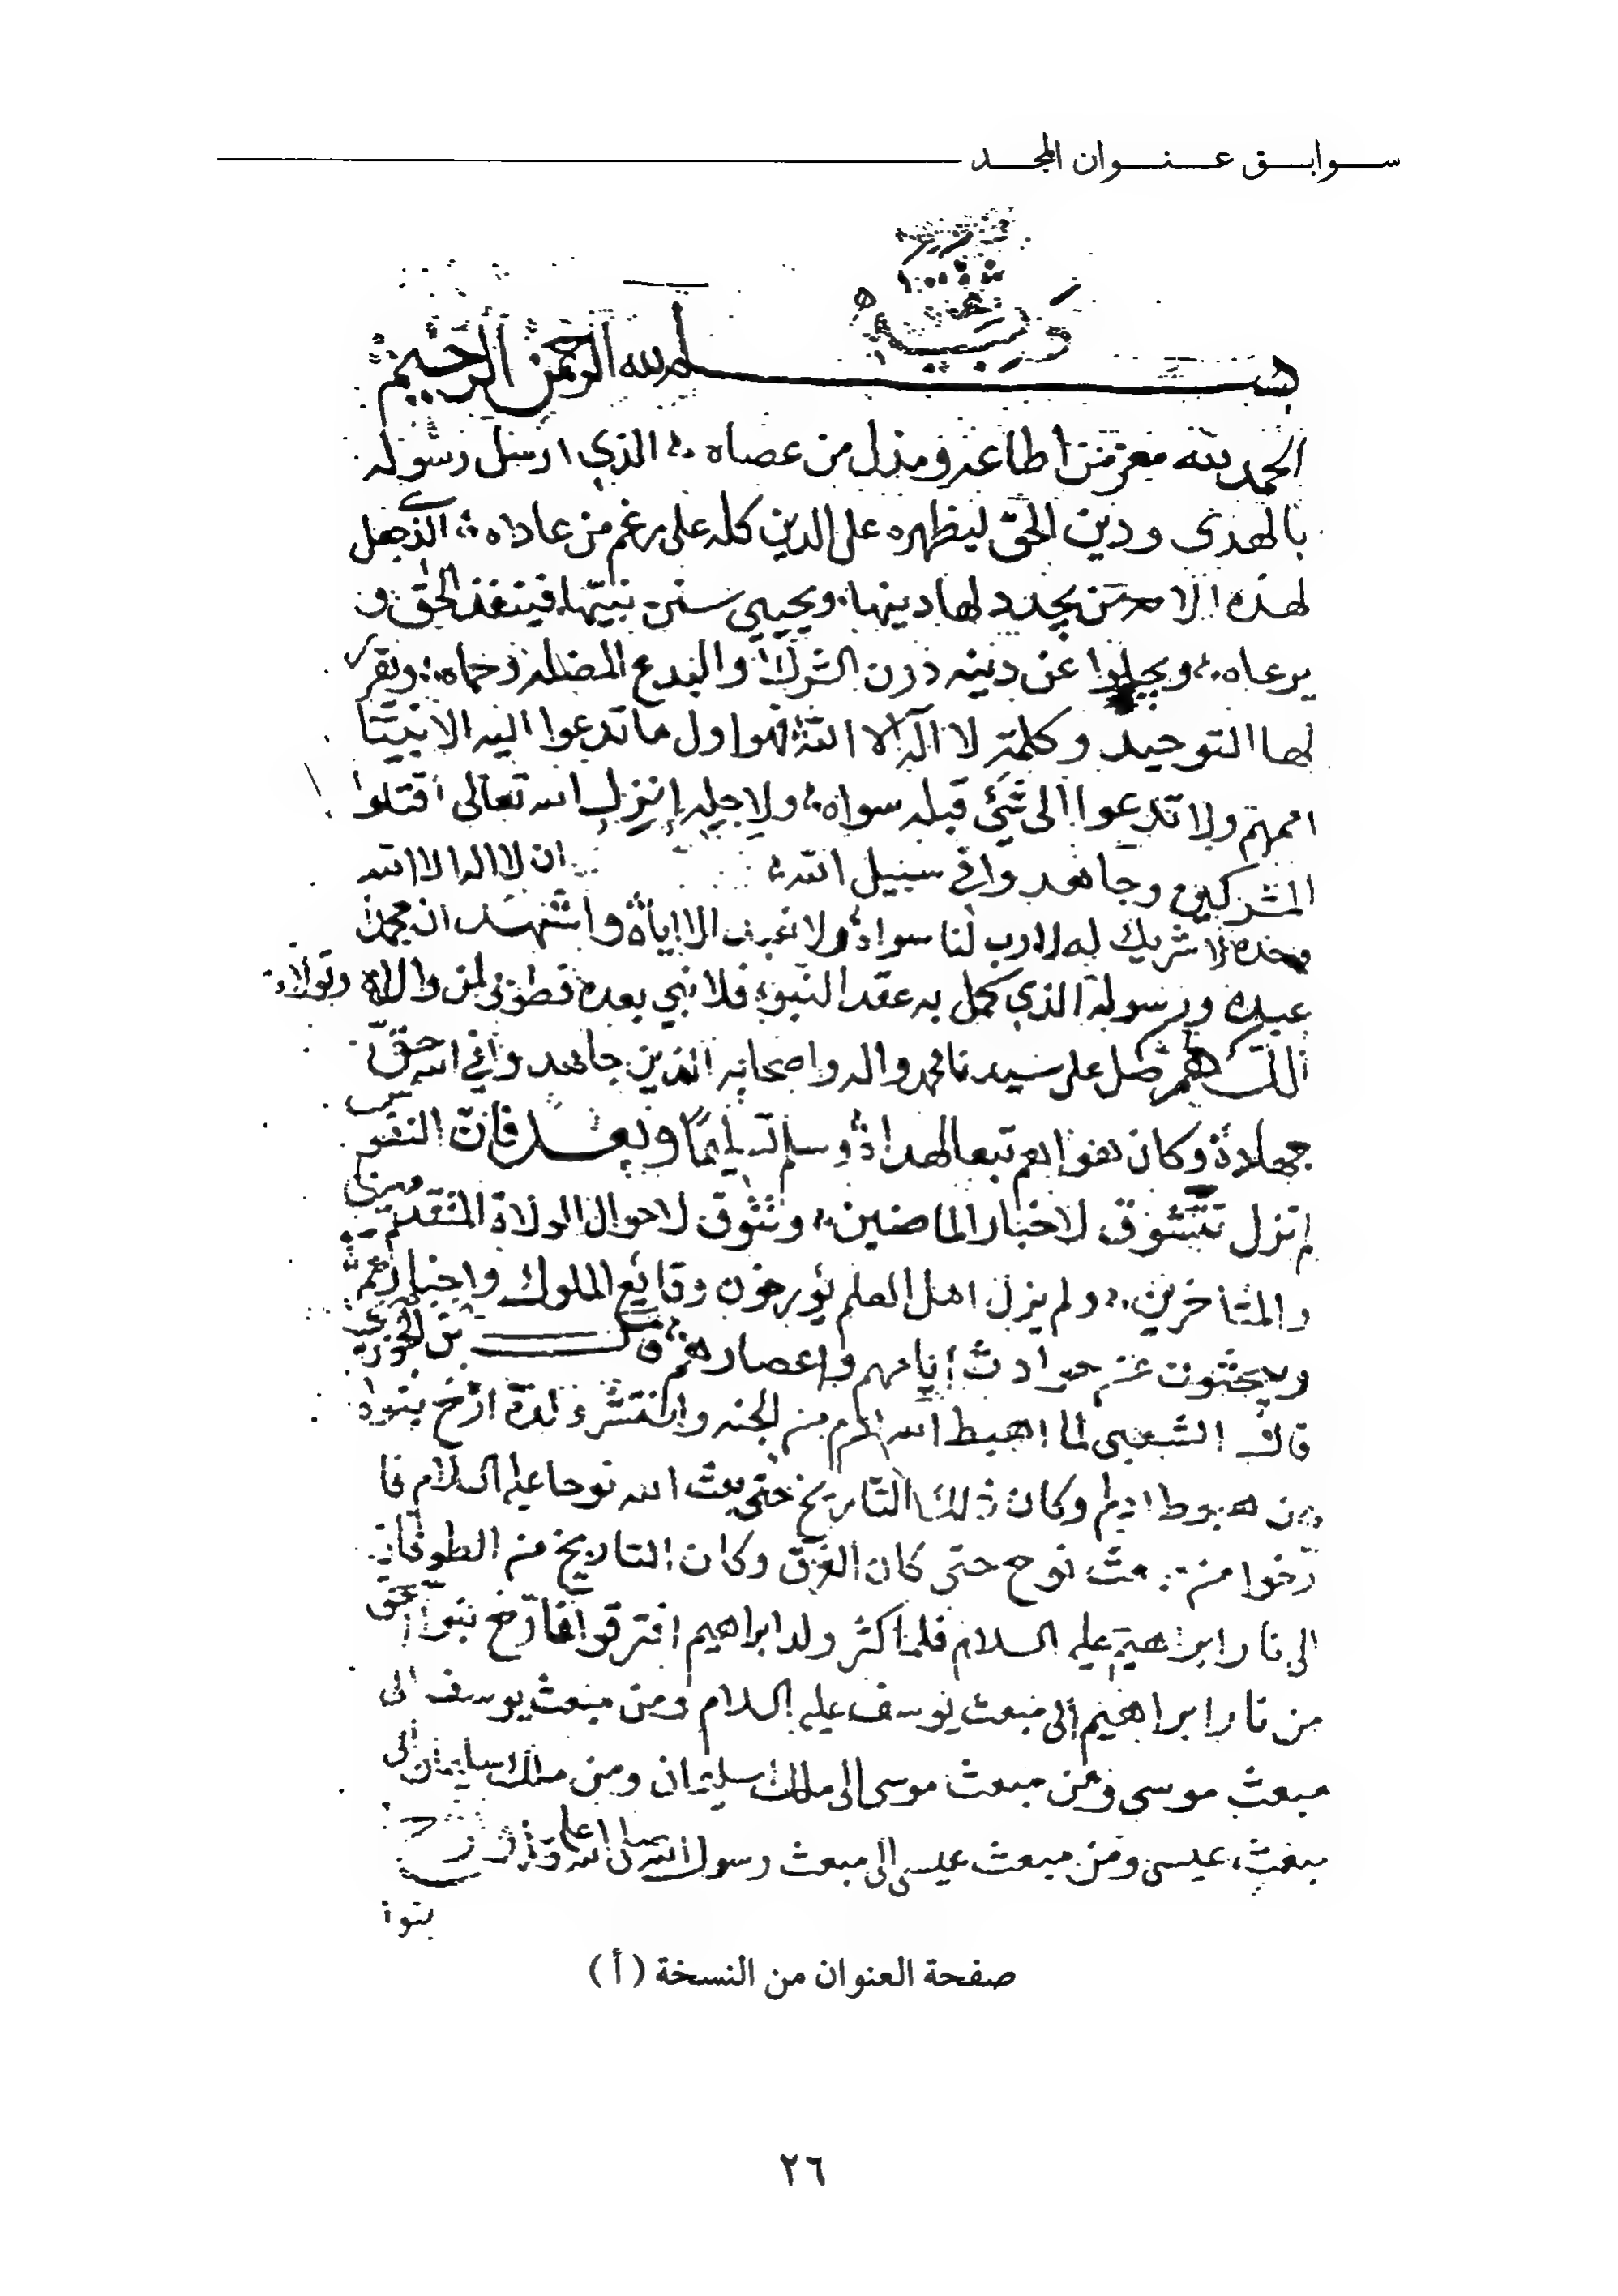 سوابق عنوان المجد
بسم الله الرحمن الرحيم
الحمد لله معز من اطاعه ومذل من عصاه الذي ارسل رسوله
بالهدى ودين الحق ليظهره على الدين كله على رغم من عاداه الذي جعل
لهذه الامة من يجدد لها دينها ويحيي سنن نبيها فينفذ الحق و
يرعاه ويجلوا عن دينه درن الشرك والبدع المضله وحماه ويقرر
لها التوحيد وكلمة لا اله الا الله فهو اول ما تدعوا اليه الانبيا
اممهم ولا تدعوا الى شئ قبله سواه ولاجله انزل الله تعالى اقتلوا
المشركين وجاهدوا في سبيل الله ان لا اله الا الله
وحده لا شريك له لا رب لنا سواه ولا نعبد الا اياه واشهد ان محمدا
عبده ورسوله الذي كمل به عقد النبوه فلا نبي بعده فطوبى لمن والاه وتولاه
اللهم صل على سيدنا محمد واله واصحابه الذين جاهدوا في الله حق
جهاده وكان هواهم تبعا لهداه وسلم تسليما وبعد فان النفوس
لم تزل تتشوق لاخبار الماضين وتتشوق لاحوال الولاة المتقدمين
والمتاخرين ولم يزل اهل العلم يورخون وقايع الملوك واخبارهم
ويبحثون عن حوادث ايامهم واعصارهم قال بن الجوزي
قال الشعبي لما اهبط الله ادم من الجنه وانتشر ولده ارخ بنوه
من هبوط ادم وكان ذلك التاريخ حتى بعث الله نوحا عليه السلام فا
رخوا من مبعث نوح حتى كان الغرق وكان التاريخ من الطوفان
الى نار ابراهيم عليه السلام فلما كثر ولد ابراهيم افترقوا فارخ بنوا اسحق
من نار ابراهيم الى مبعث يوسف عليه السلام ومن مبعث يوسف الى
مبعث موسى ومن مبعث موسى الى ملك سليمان ومن ملك سليمان الى
مبعث عيسى ومن مبعث عيسى الى مبعث رسول الله صلى الله عليه وارخ
بنوا
صفحة العنوان من النسخة (أ)
٢٦